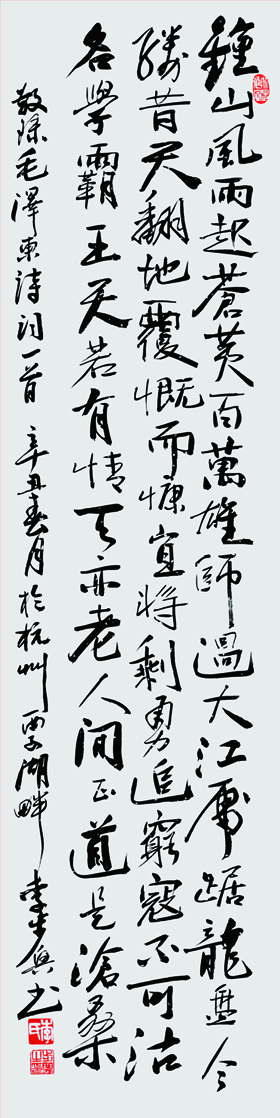 鐘山風雨起蒼黃百萬雄師過大江虎踞龍盤今
勝昔天翻地覆慨而慷宜將剩勇追窮寇不可沽
名學霸王天若有情天亦老人間正道是滄桑
敬錄毛澤東詩詞一首 辛丑春月於杭州西子湖畔 李 書